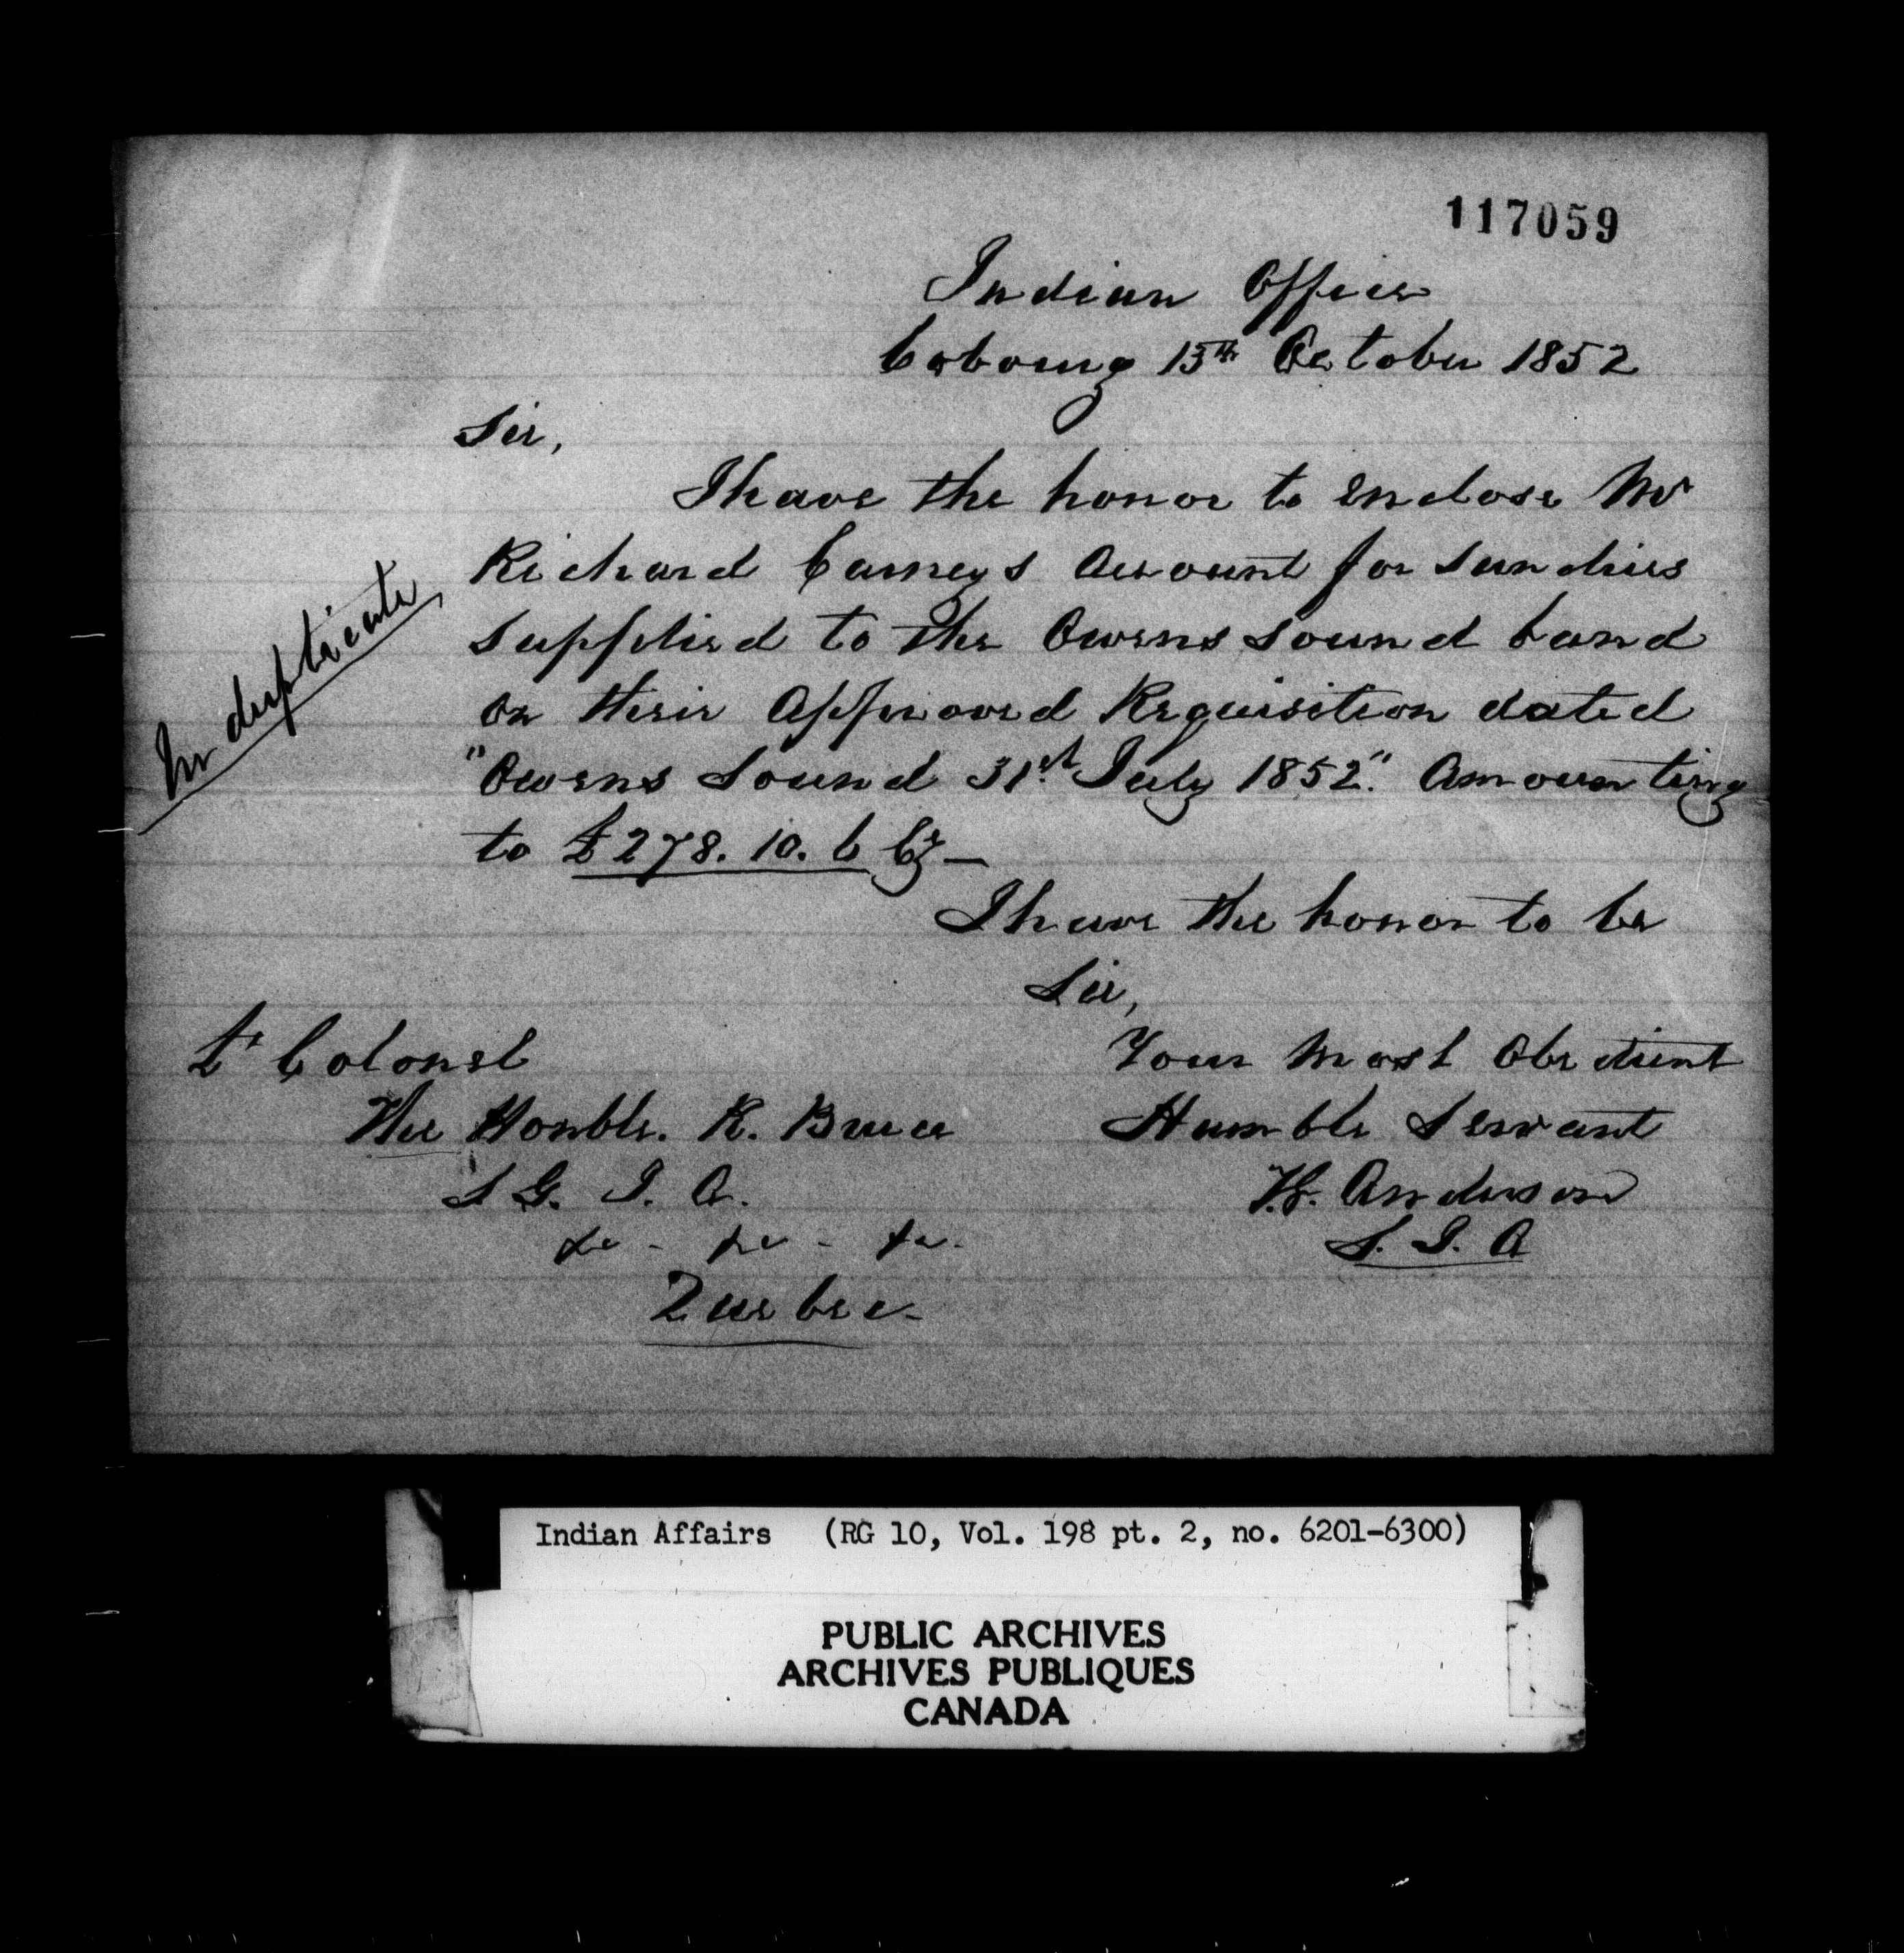 117059
Indian Office
Cobourg 13th October 1852
Sir,
I have the honor to enclose Mr
Richard Carneys Account for Sundries
Supplied to the Owens Sound band
on their Approved Requisition dated
"Owens Sound 31st July 1852." Amounting
to £278.10.6 Cy —
In duplicate
I have the honor to be
Sir,
Your Most Obedient
Humble Servant
Anderson
S. I. A
Lt Colonel
The Honble. R. Bruce
S G. I. A.
&c - &c - &c.
Quebec
Indian Affairs (RG 10, Vol. 198 pt. 2, no. 6201-6300)
PUBLIC ARCHIVES
ARCHIVES PUBLIQUES
CANADA